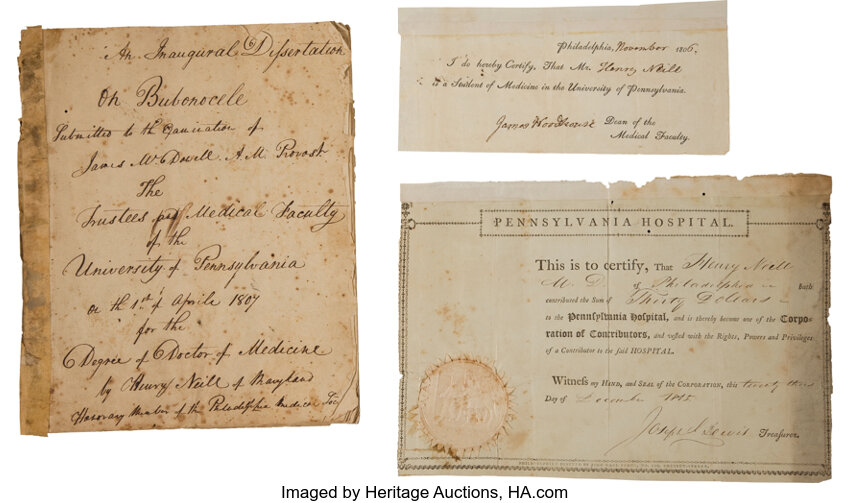 An Inaugural Dissertation
On Bubonocele
Submitted to the examination of
James McDowell A.M. Provost
The
Trustees and Medical Faculty
of the
University of Pennsylvania
on the 1st of Aprile 1807
for the
Degree of Doctor of Medicine
by Henry Neill of Maryland
Honorary Member of the Philadelphia Medical Soc
Philadelphia, November 1806.
I do hereby Certify, That Mr. Henry Neill
is a Student of Medicine in the University of Pennsylvania.
James Woodhouse Dean of the
Medical Faculty.
PENNSYLVANIA HOSPITAL.
This is to certify, That Henry Neill
M. D. of Philadelphia hath
contributed the Sum of Thirty Dollars
to the Pennsylvania Hospital, and is thereby become one of the Corpo-
ration of Contributors, and vested with the Rights, Powers and Privileges
of a Contributor to the said HOSPITAL.
Witness my HAND, and SEAL of the CORPORATION, this twenty third
Day of December 1815
Joseph S Lewis Treasurer.
Imaged by Heritage Auctions, HA.com